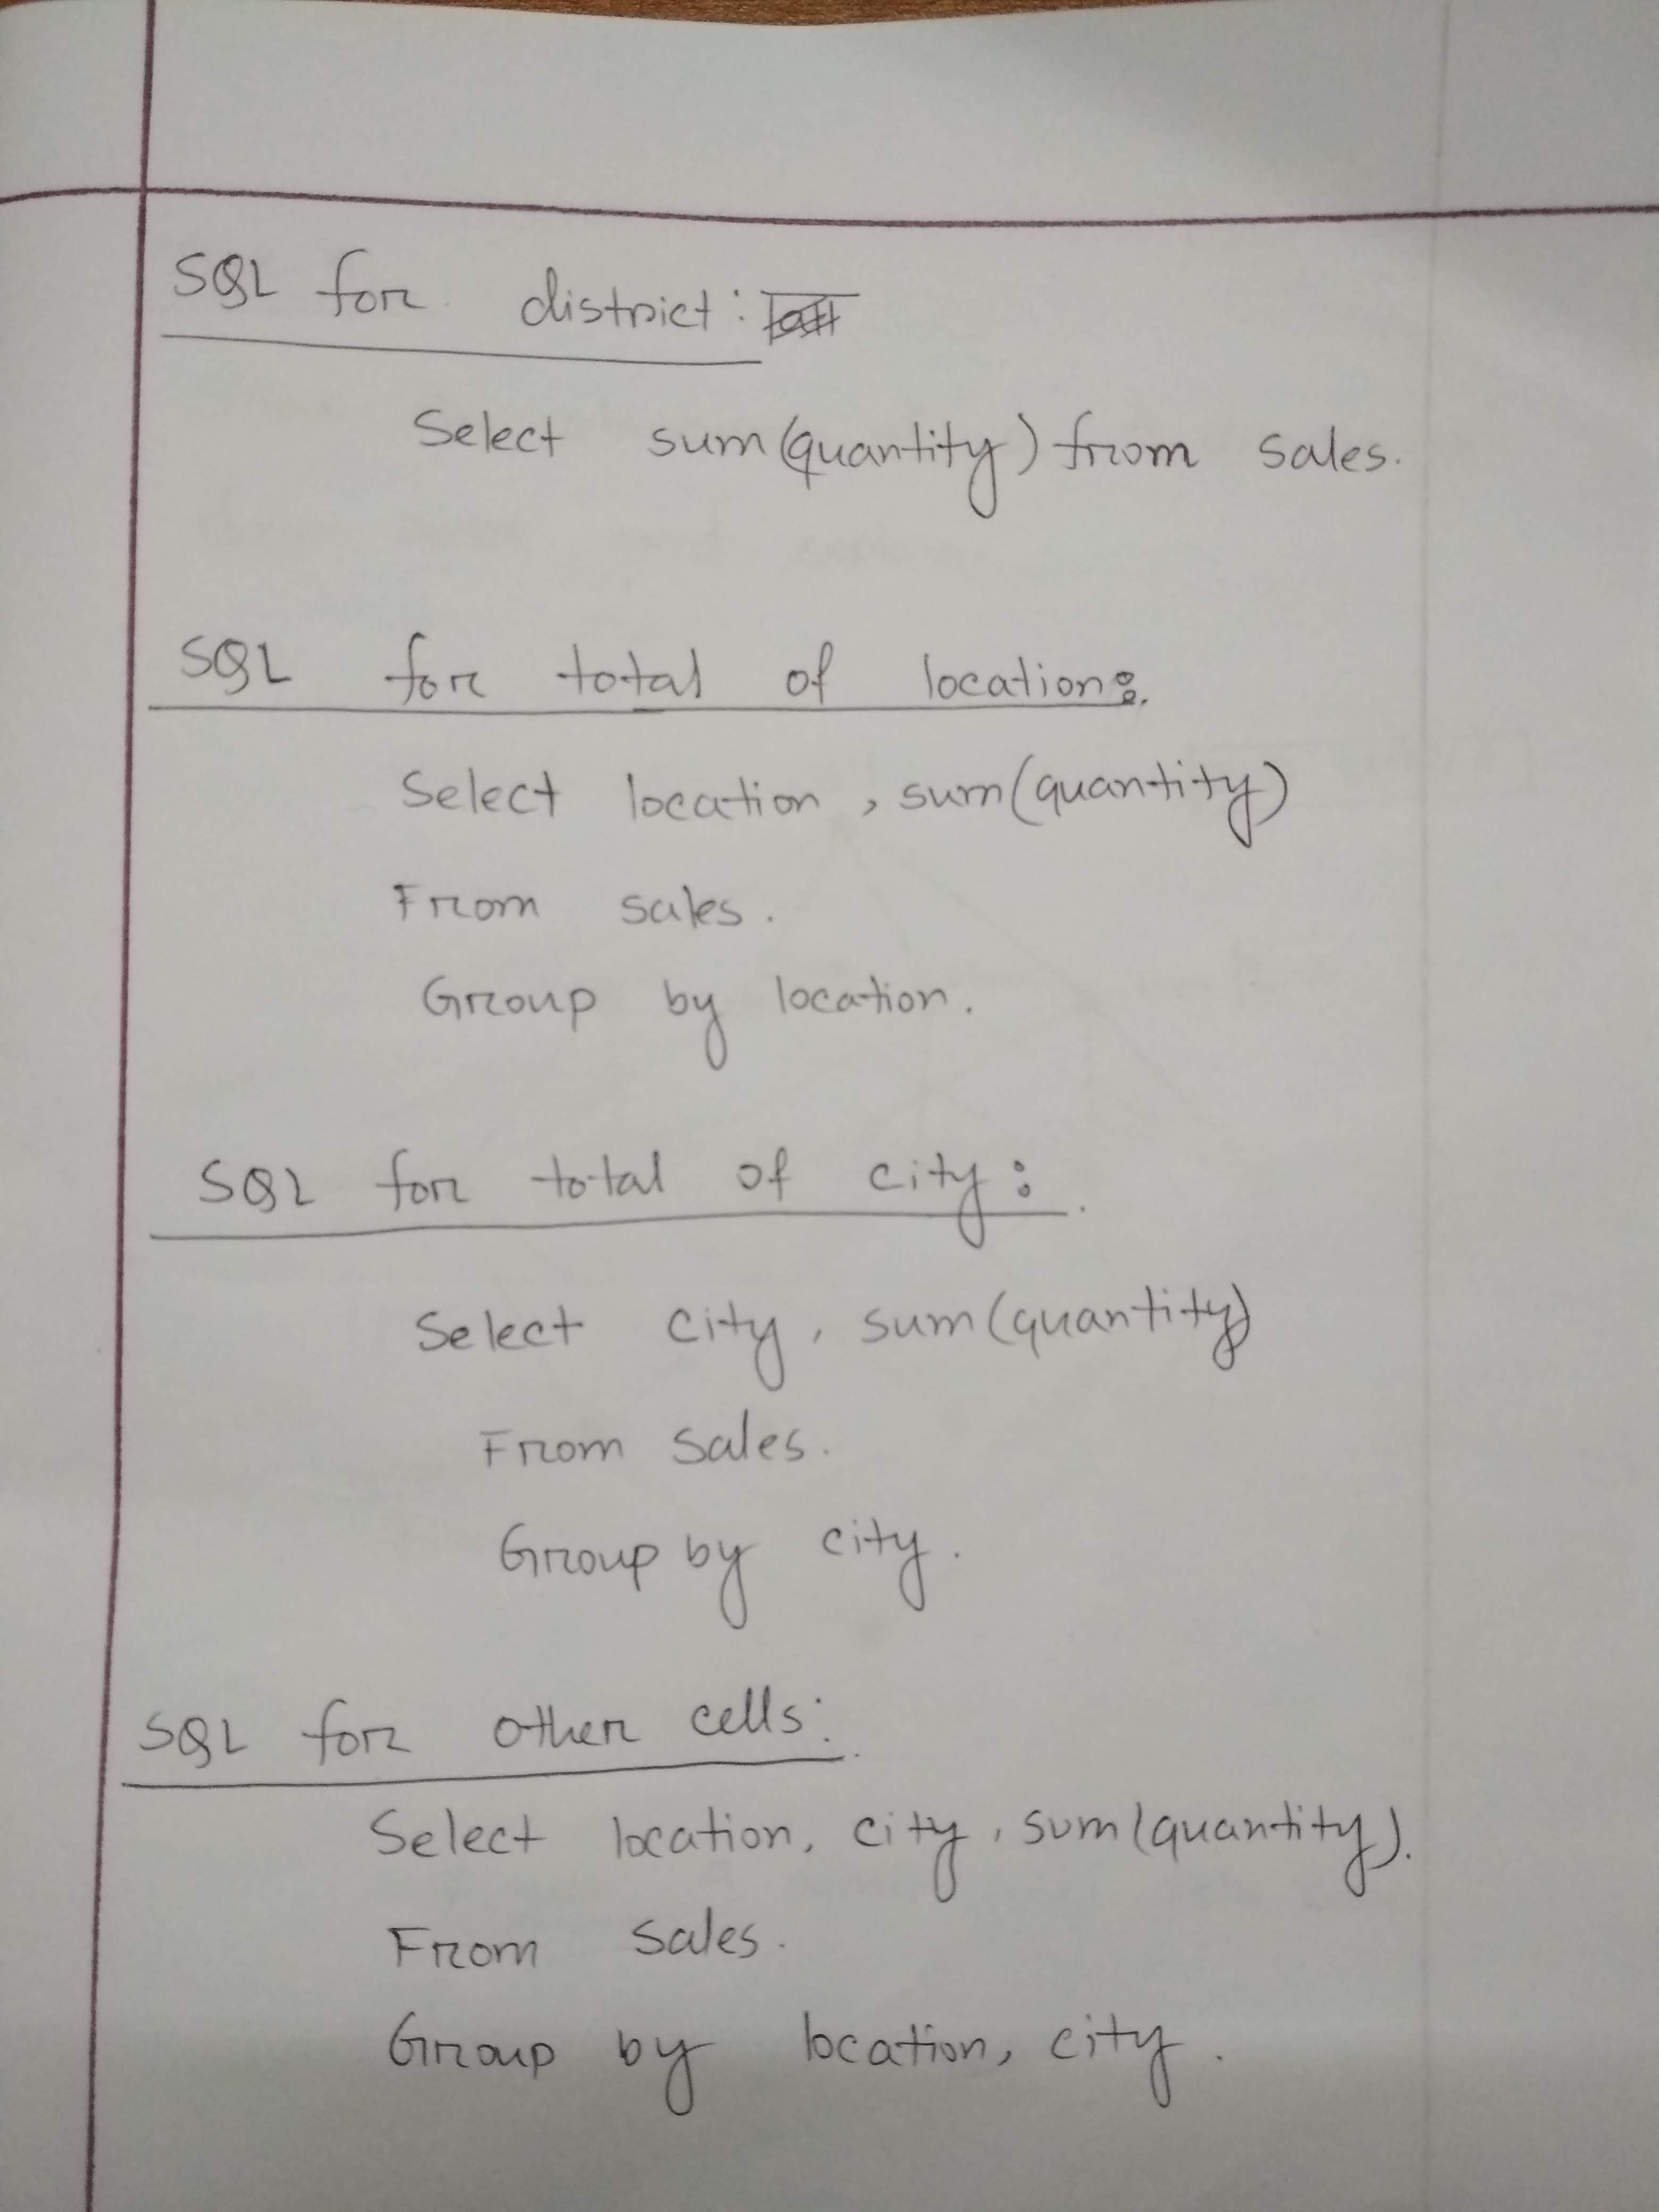 SQL for district:
Select sum(quantity) from sales.
SQL for total of location:
Select location, sum(quantity)
From sales.
Group by location.
SQL for total of city:
Select city, sum(quantity)
From sales.
Group by city.
SQL for other cells:
Select location, city, sum(quantity).
From sales.
Group by location, city.